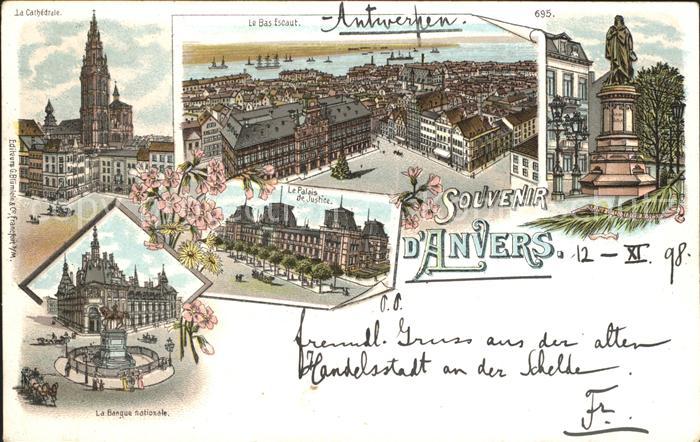 La Cathédrale.
Le Bas Escaut.
Antwerpen.
695.
Le Palais
de Justice.
SOUVENIR
D'ANVERS.
12 – XI. 98.
P. P.
freundl. Gruss aus der alten
Handelsstadt an der Schelde.
Fr.
La Banque nationale.